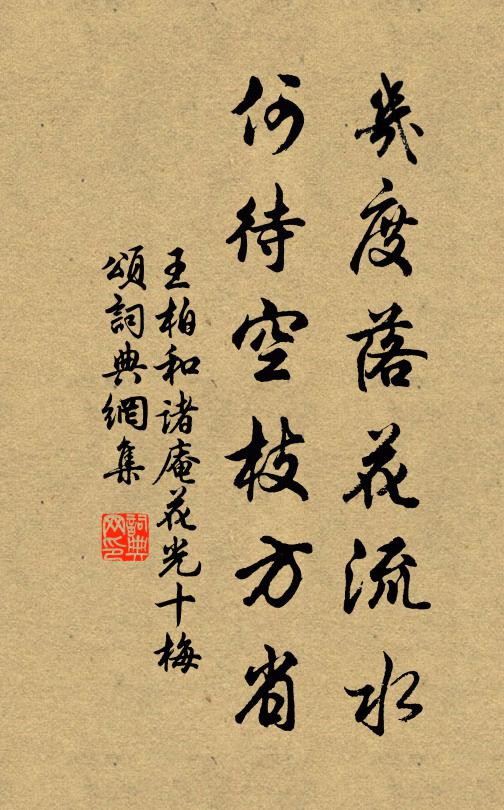 幾度落花流水
何待空枝方省
王柏和諸庵花光十梅
頌詞典網集
詞典網印